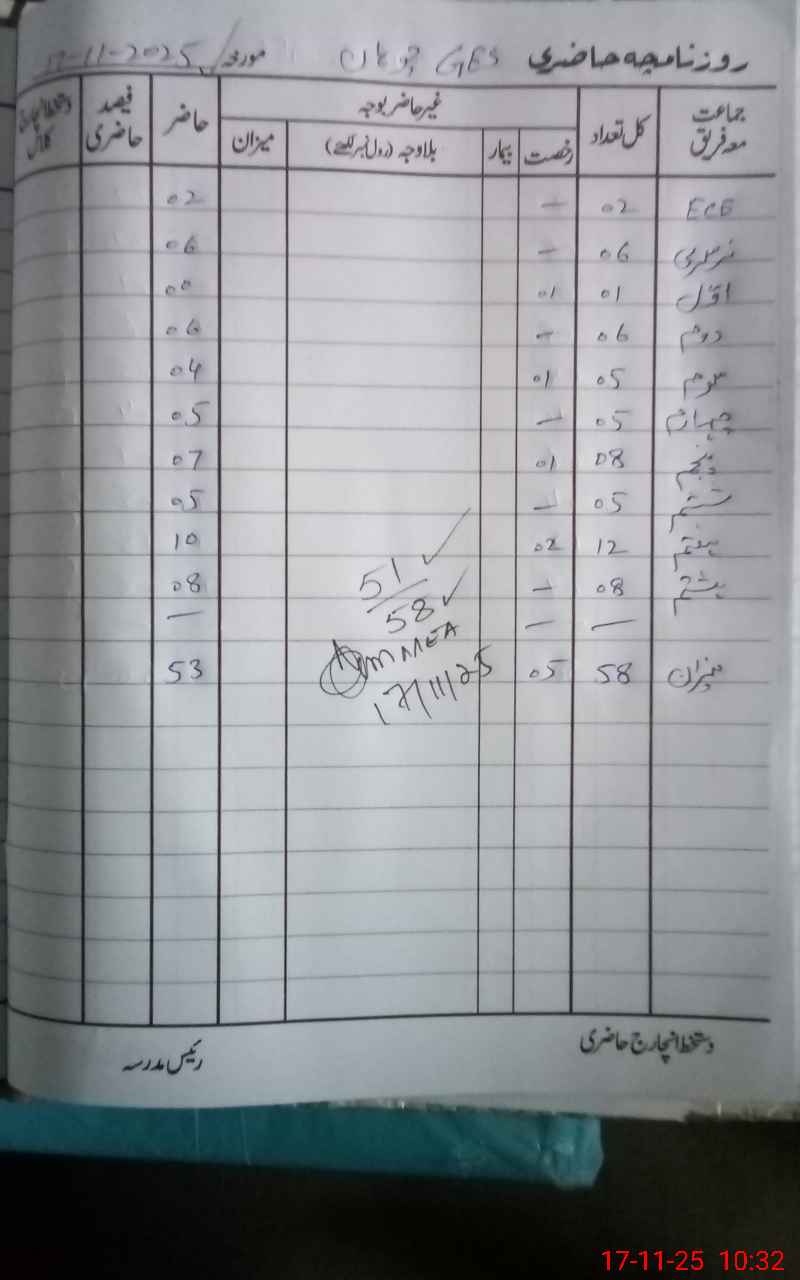 روزنامچہ حاضری GES چوہان مورخہ 17-11-2025
جماعت معہ فریق کل تعداد غیر حاضر بوجہ حاضر فیصد حاضری دستخط انچارج کلاس
رخصت بیمار بلاوجہ (رول نمبر لکھیے) میزان
ECE 02 — 02
نرسری 06 — 06
اوّل 01 01 00
دوم 06 — 06
سوم 05 01 04
چہارم 05 — 05
پنجم 08 01 07
ششم 05 — 05
ہفتم 12 02 10
ہشتم 08 — 08
— — —
میزان 58 05 53
51
58
MEA
17/11/25
دستخط انچارج حاضری رئیس مدرسہ
17-11-25 10:32